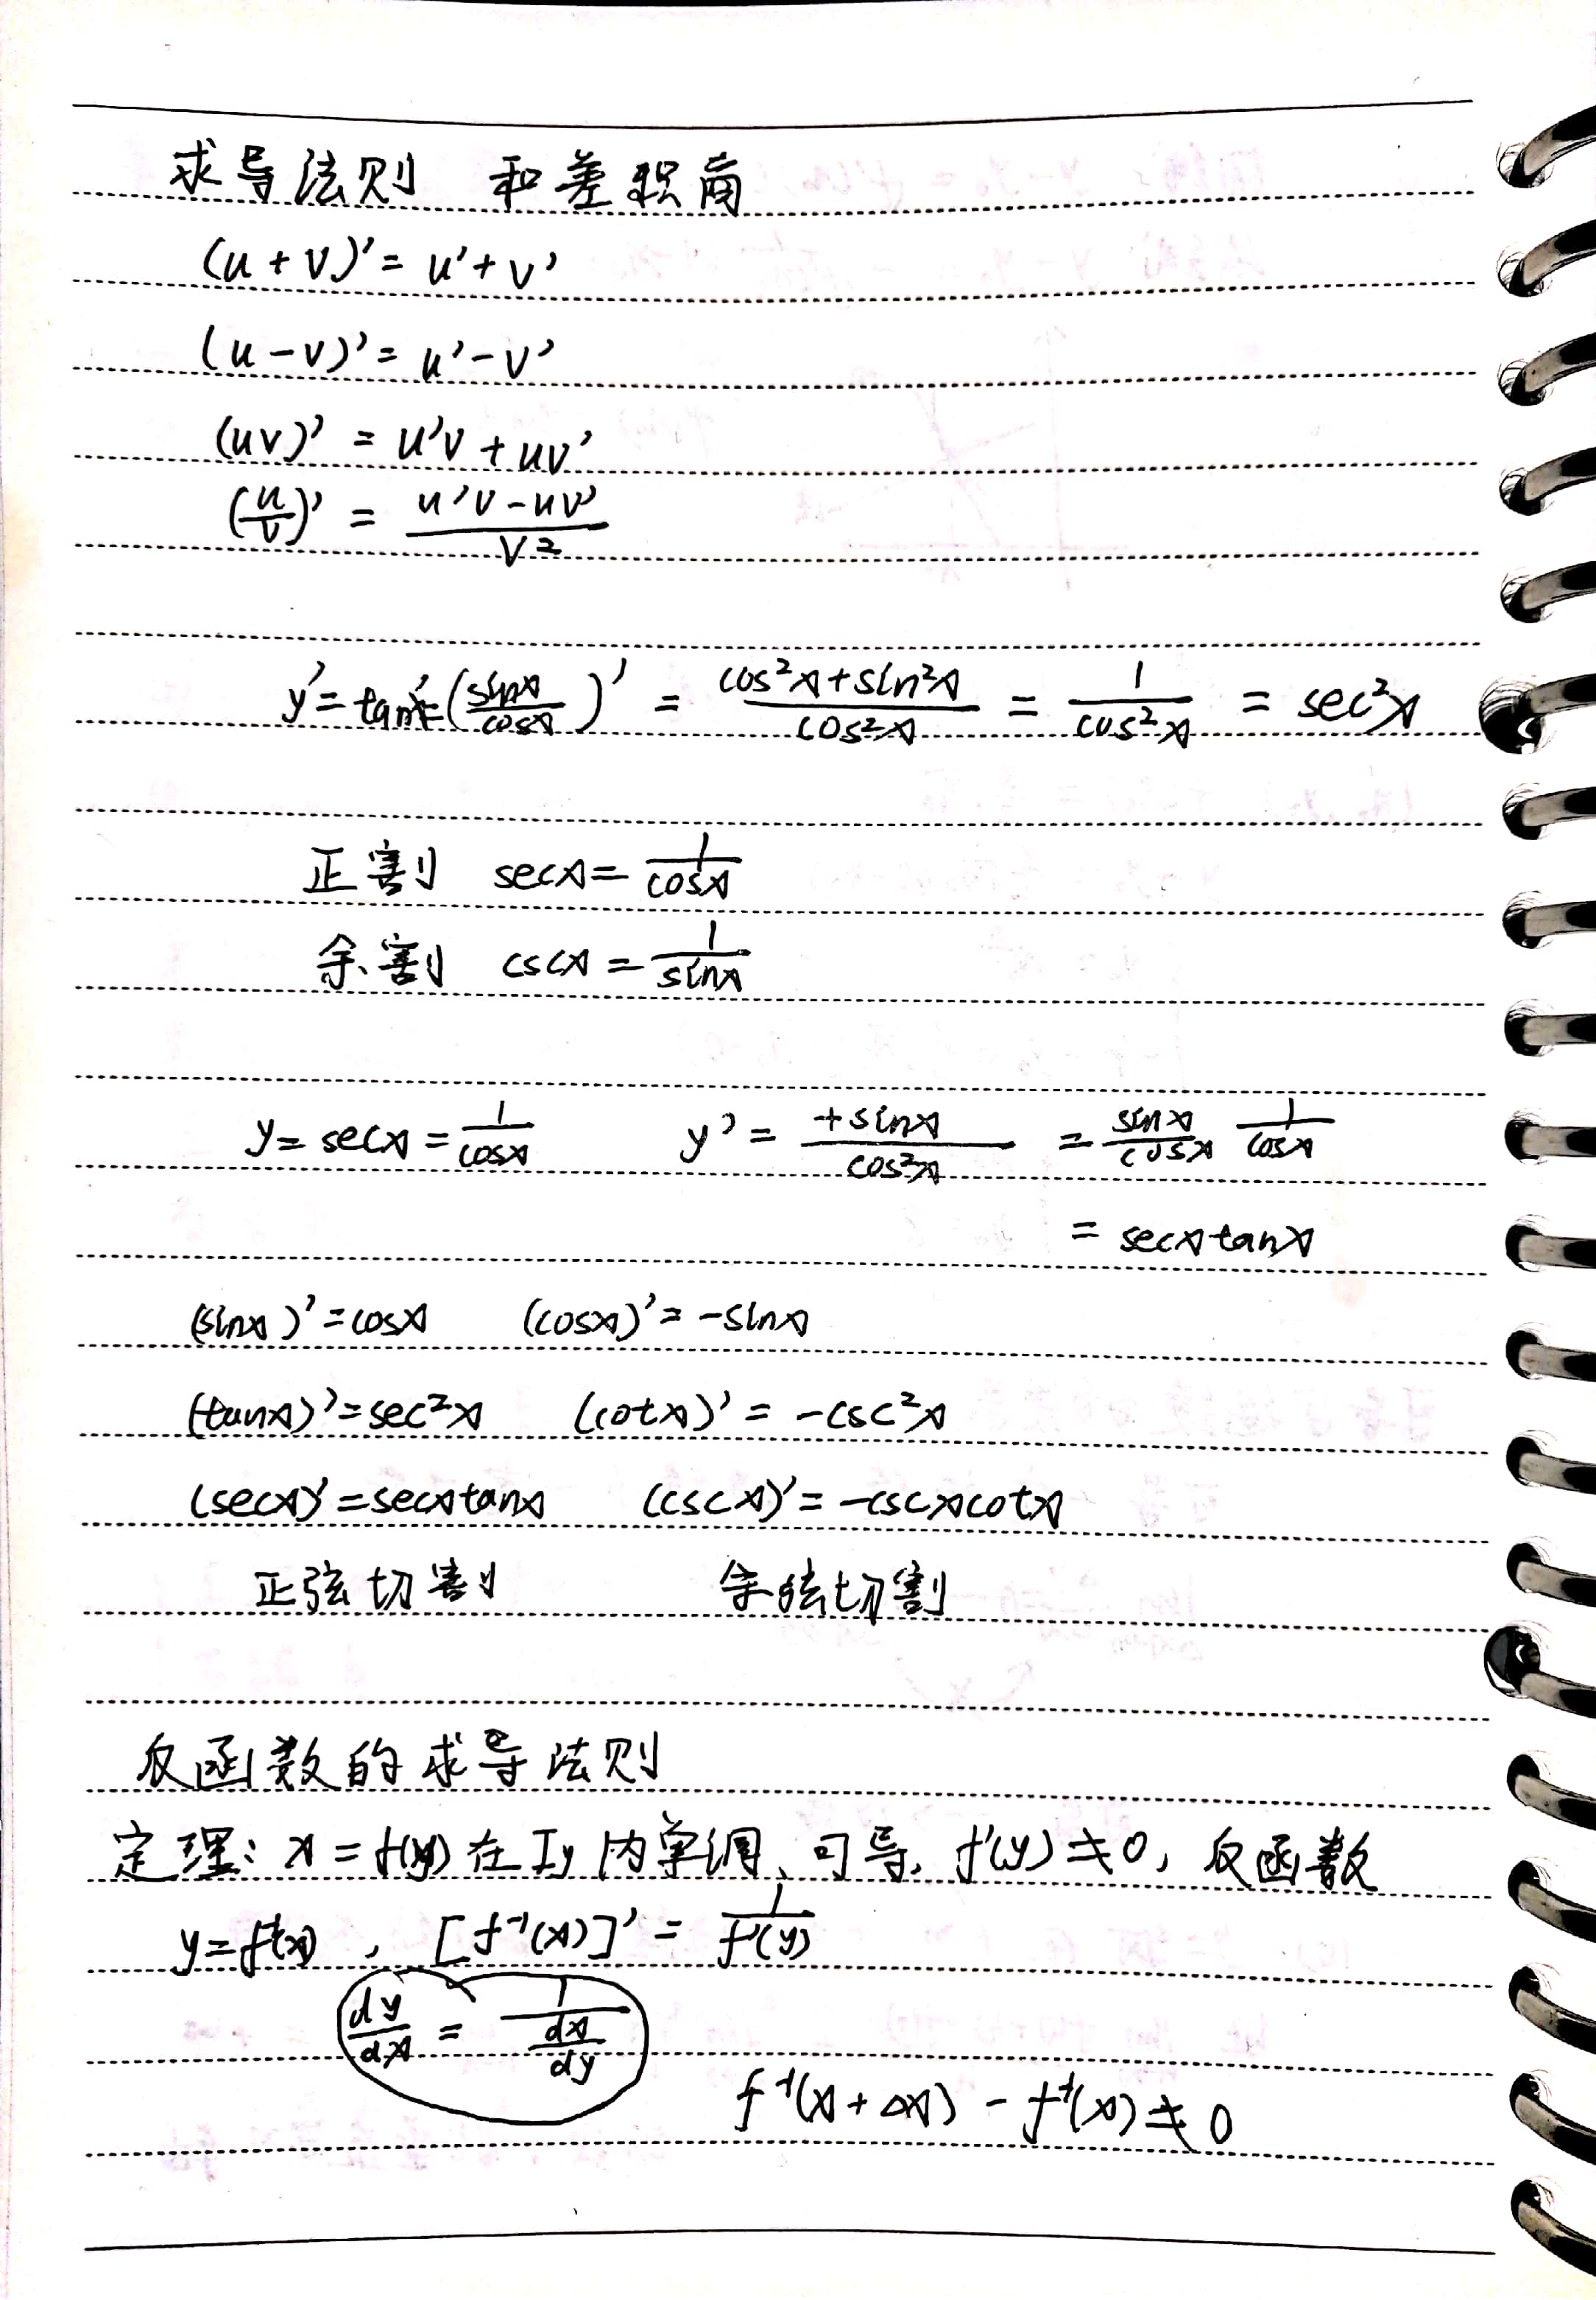 求导法则 和差积商
(u+v)'=u'+v'
(u-v)'=u'-v'
(uv)'=u'v+uv'
(u/v)'=(u'v-uv')/v²
y'=tan'x=(sinx/cosx)'=(cos²x+sin²x)/cos²x=1/cos²x=sec²x
正割 secx=1/cosx
余割 cscx=1/sinx
y=secx=1/cosx y'=+sinx/cos²x=sinx/cosx 1/cosx
=secxtanx
(sinx)'=cosx (cosx)'=-sinx
(tanx)'=sec²x (cotx)'=-csc²x
(secx)'=secxtanx (cscx)'=-cscxcotx
正弦切割 余弦切割
反函数的求导法则
定理:x=f(y)在Iy内单调、可导,f'(y)≠0,反函数
y=f⁻¹(x),[f⁻¹(x)]'=1/f'(y)
dy/dx=1/(dx/dy)
f⁻¹(x+Δx)-f⁻¹(x)≠0